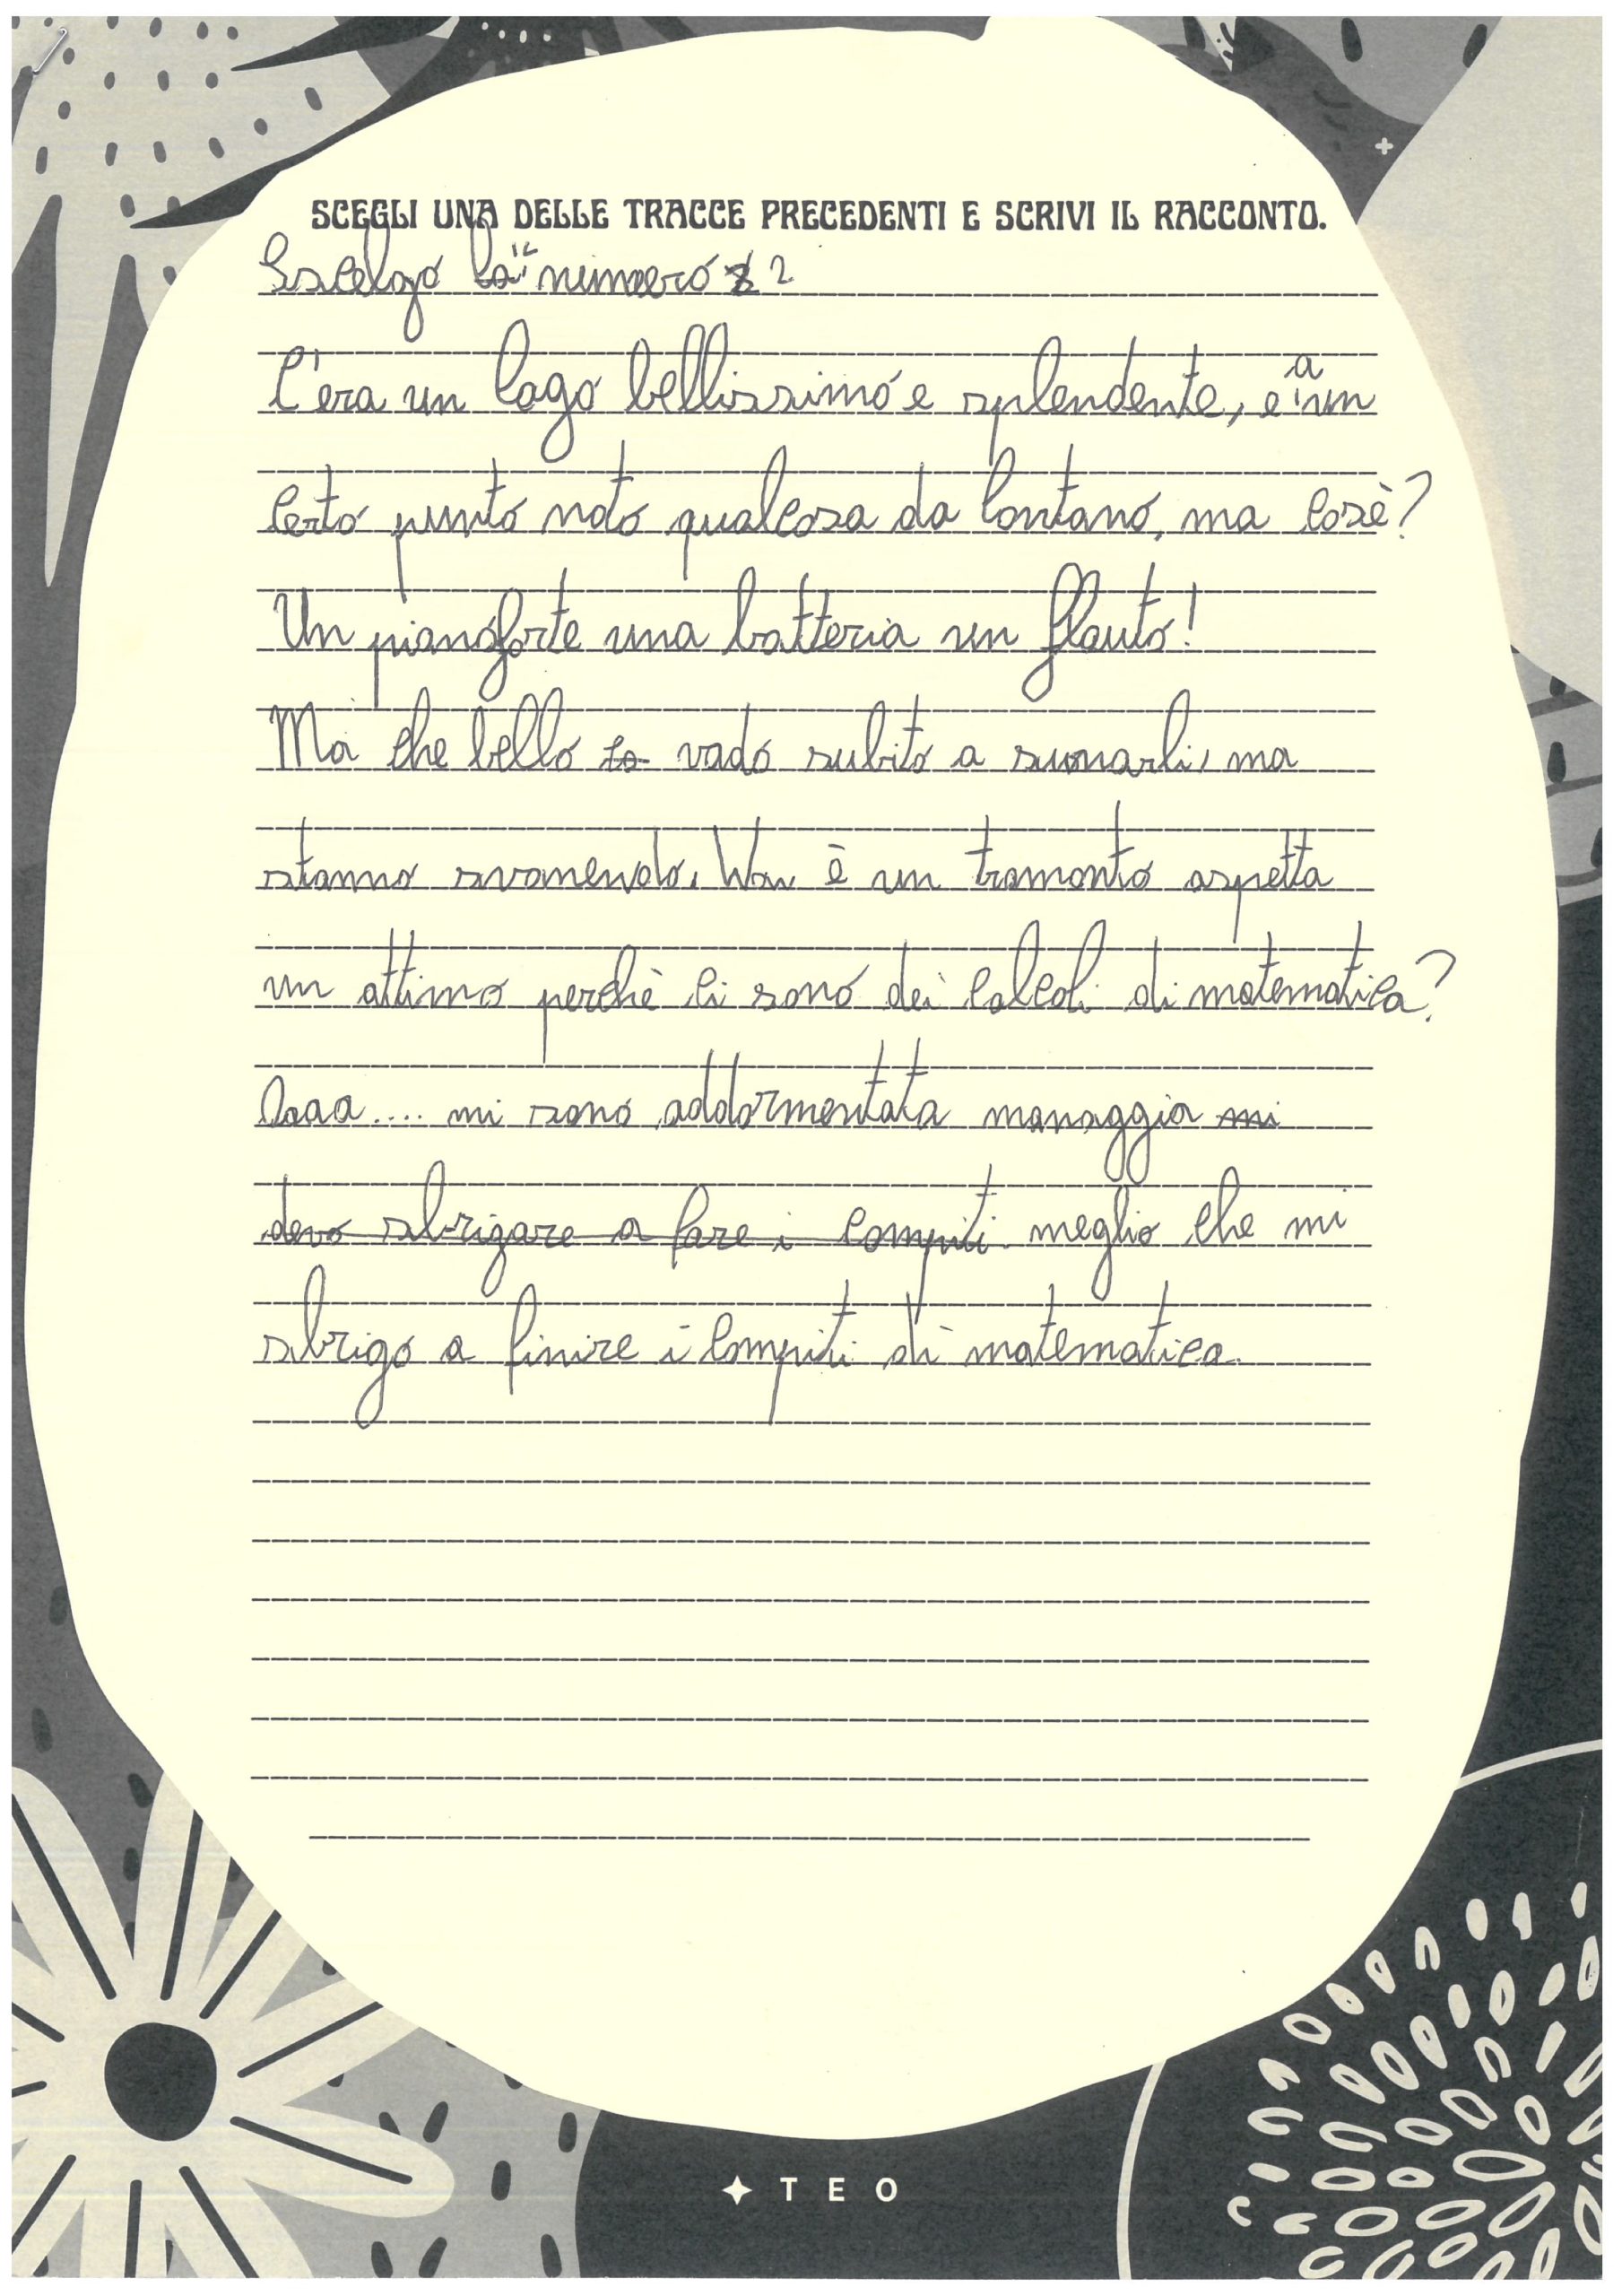 SCEGLI UNA DELLE TRACCE PRECEDENTI E SCRIVI IL RACCONTO.
Scelgo il numero 2
C'era un lago bellissimo e splendente, e a un
certo punto noto qualcosa da lontano, ma cosè?
Un pianoforte una batteria un flauto!
Ma che bello vado subito a suonarli, ma
stanno svanendo. Wow è un tramonto aspetta
un attimo perchè ci sono dei calcoli di matematica?
Oaaa.... mi sono addormentata mannaggia mi
devo sbrigare a fare i compiti meglio che mi
sbrigo a finire i compiti di matematica.
TEO